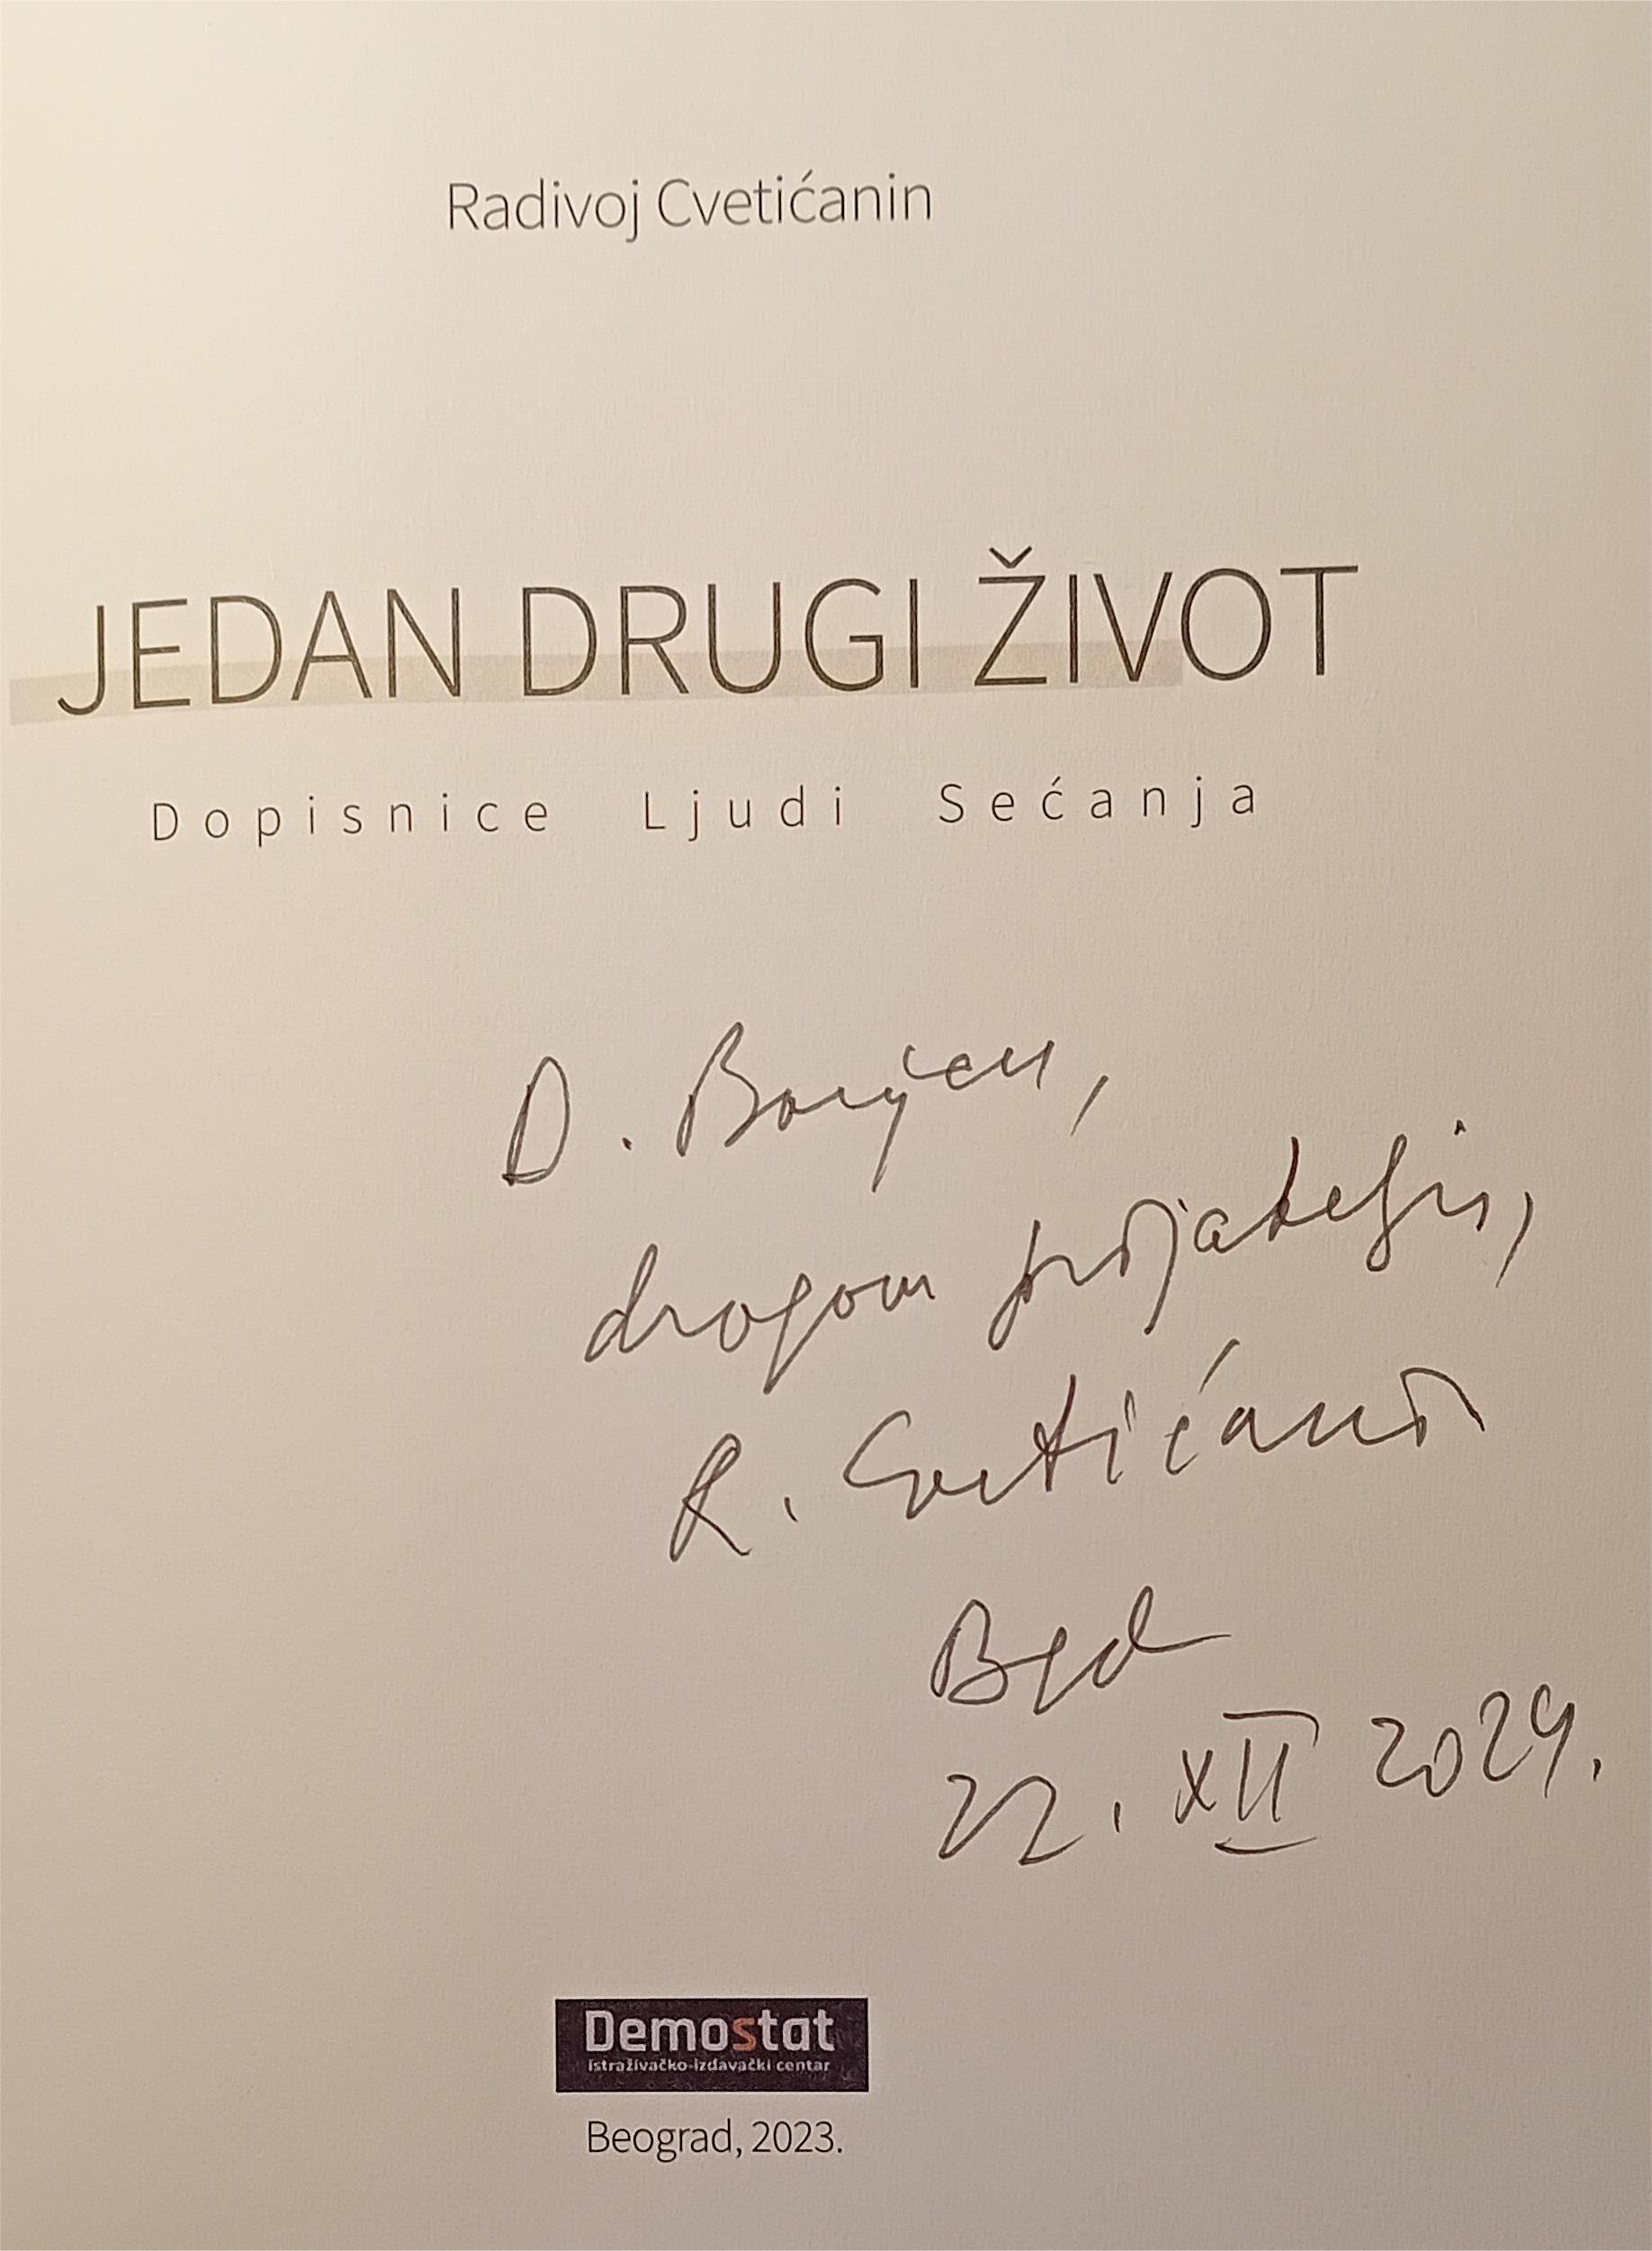 Radivoj Cvetićanin
JEDAN DRUGI ŽIVOT
Dopisnice Ljudi Sećanja
D.
dragom prijatelju,
R. Cvetićanin
Bgd
22. XII 2024.
Demostat
istraživačko-izdavački centar
Beograd, 2023.